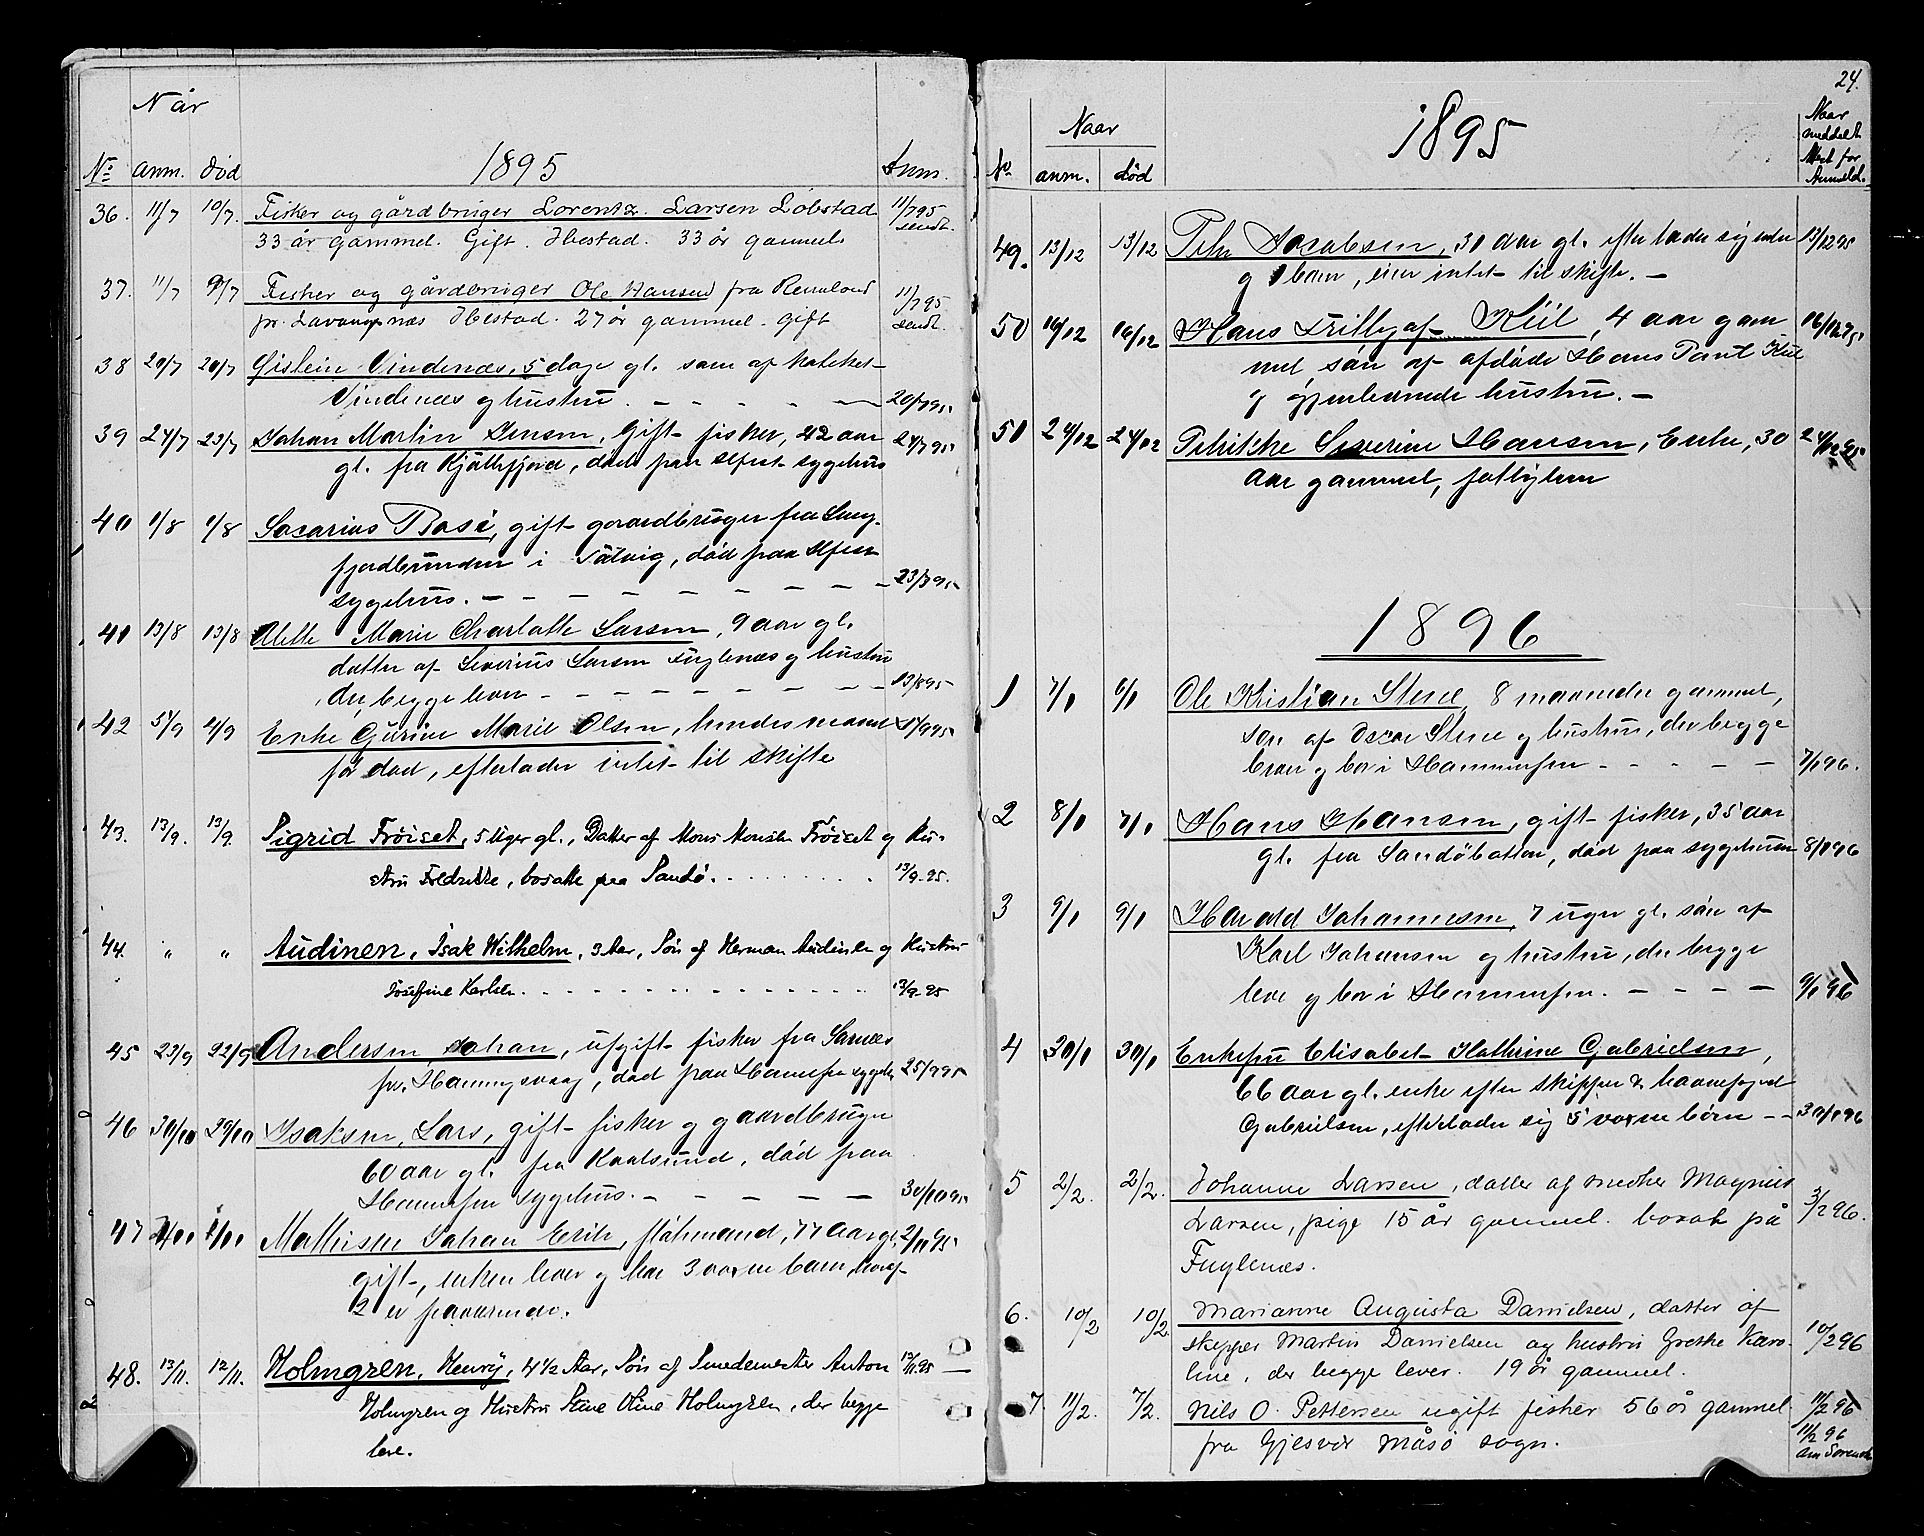 Når
No anm. død 1895 Anm.
36. 11/7 10/7. Fisker og gårdbruger Lorentz. Larsen Lobstad 11/7 95
33 år gammel. Gift. Ibestad. 33 år gammel. sendt.
37. 11/7 9/7 Fisker og gårdbruger Ole Hansen fra 11/7 95
pr. Lavangnæs Ibestad. 27 år gammel. gift sendt.
38 20/7 20/7 Gislein Vindenæs, 5 dage gl. søn af
Vindenæs og hustru . - - - - 20/7 95
39 24/7 23/7 Johan Martin Jensen, Gift fisker, 42 aar 24/7 95
gl. fra Kjøllefjord, død paa Hfest sygehus
40 1/8 1/8 Sacarias Rase, gift gaardbruger fra
fjordbunden i Talvig, død paa Hfest
sygehus. - - - - - - - - 23/8 95
41 13/8 13/8 Alette Marie Charlotte Larsen, 9 aar gl.
datter af Severius Larsen Fuglenæs og hustru
, der begge lever - - - - - - - - 13/8 95
42 5/9 4/9 Enke Gurine Marie Olsen, hendes mand 5/9 95
før død, efterlader intet til skifte
43. 13/9. 13/9. Sigrid Frøiset, 5 Uger gl., Datter af Mons Monsen Frøiset og Hu-
stru Fredrikke, bosatte paa Sandø. . . . . . . . 13/9.95.
44. " " Audinen, Isak Wilhelm, 3 Aar, Søn af Herman Audinen og Hustru
Josefine Karlsen. . . . . . . . . . . . . . . 13/9.95
45 23/9 22/9 Andersen Johan, ugift fisker fra Sarnæs
pr. Honningsvaag, død paa Hammerfest sygeh. 25/9 95
46 30/10 29/10 Isaksen, Lars, gift fisker og gaardbruger
60 aar gl. fra Kvalsund, død paa
Hammerfest sygehus. - - - - - 30/10 95
47 2/11 1/11 Mathisen Johan Erik, 77 aar gl. 2/11 95
gift, enken lever og har 3 voxne børn, hvoraf
2 er fraværende.
48. 13/11. 12/11. Holmgren, Henry, 4 1/2 Aar, Søn af Smedemester Anton 13/11.95 —
Holmgren og Hustru Stine Oline Holmgren, der begge
leve.
24.
Naar 1895 Naar
meddelt
No anm. død Anmeld.
49. 13/12 13/12 Peter Jacobsen, 30 aar gl. efterlader sig enke 13/12 95
og 1 barn, eier intet til skifte. -
50 16/12 16/12 Hans Trillegaf Kiil, 4 aar gam 16/12 95
mel søn af afdøde Hans Pant Kiil
og gjenlevende hustru. -
51 24/12 24/12 Petrikke Severine Hansen, Enke, 30 24/12 95
Aar gammel, fattiglem
1896
1 7/1 6/1 Ole Kristian Stene 8 maaneder gammel,
søn af Oscar Stene og hustru, der begge
lever og bor i Hammerfest - - - - - 7/1 96.
2 8/1 7/1 Hans Hansen, gift fisker, 35 aar
gl. fra Sandøbotten, død paa sygehuset 8/1 96
3 9/1 9/1 Harald Johannesen, 7 uger gl. søn af
Karl Johansen og hustru, der begge
leve og bor i Hammerfest. - - - - 9/1 96
4 30/1 30/1 Enkefru Elisabet Kathrine Gabrielsen,
66 aar gl. enke efter skipper & havnefoged
Gabrielsen, efterlader sig 5 voxne børn - - 30/1 96
5 2/2. 2/2. Johanne Larsen, datter af snedker Magnus
Larsen, pige 15 år gammel. bosat på 3/2 96.
Fuglenæs.
6. 10/2 10/2. Marianne Augusta Danielsen, datter af
skipper Martin Danielsen og hustru Grethe Karo- 10/2 96
line, der begge lever. 19 år gammel.
7. 11/2. 7/2. Nils O. Pettersen ugift fisker 56 år gammel 11/2 96
fra Gjesvær Måsø sogn. 11/2 96